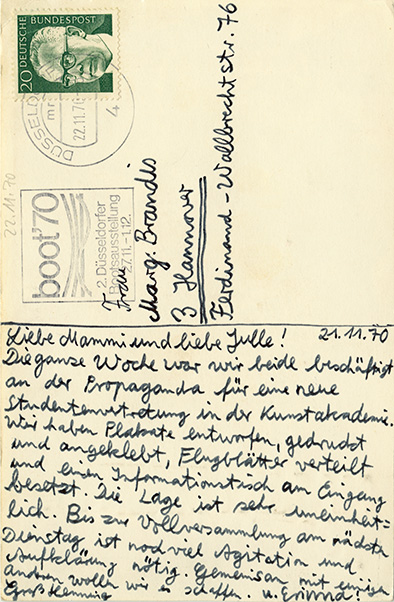 20 DEUTSCHE
BUNDESPOST
22.11.70
4
22.11.70
boot'70
2. Düsseldorfer
Bootsausstellung
27.11.-1.12.
Frau
Marg. Brandis
3 Hannover
Ferdinand-Wallbrechtstr. 76
Liebe Mammi und liebe Julle! 21.11.70
Die ganze Woche war wir beide beschäftigt
an der Propaganda für eine neue
Studentenvertretung in der Kunstakademie.
Wir haben Plakate entworfen, gedruckt
und angeklebt, Flugblätter verteilt
und einen Informationstisch am Eingang
besetzt. Die Lage ist sehr uneinheit=
lich. Bis zur Vollversammlung am nächsten
Dienstag ist noch viel Agitation und
Aufklärung nötig. Gemeinsam mit einigen
andren wollen wir es schaffen. u.